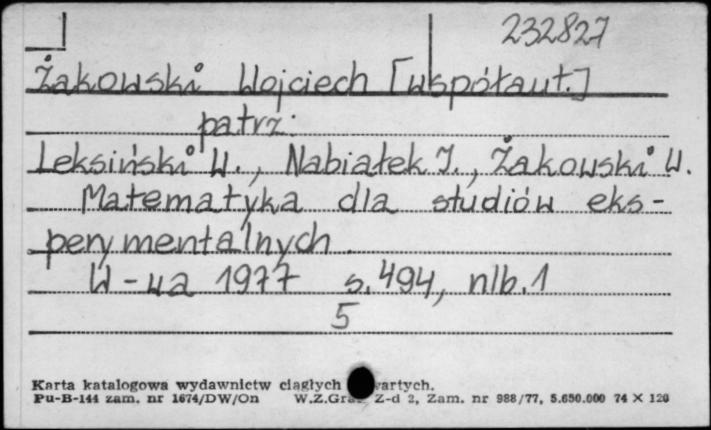 232827
Żakowski Wojciech [współaut.]
patrz:
Leksiński W., Nabiałek J., Żakowski W.
Matematyka dla studiów eks-
perymentalnych.
W-wa 1977 s. 494, nlb. 1
5
Karta katalogowa wydawnictw ciągłych
Pu-B-144 zam. nr 1674/DW/On W.Z.Graf. Z-d 2, Zam. nr 988/77, 5.650.000 74 × 120